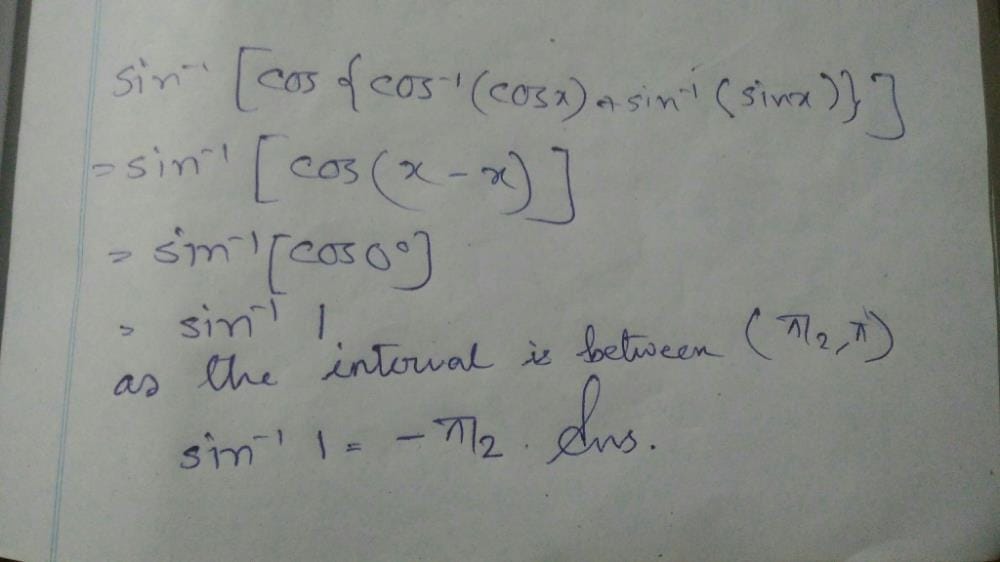 sin⁻¹ [cos{cos⁻¹(cosx) + sin⁻¹(sinx)}]
= sin⁻¹ [cos(x - x)]
= sin⁻¹[cos 0°]
= sin⁻¹ 1
as the interval is between (π/2, π)
sin⁻¹ 1 = - π/2 . Ans.